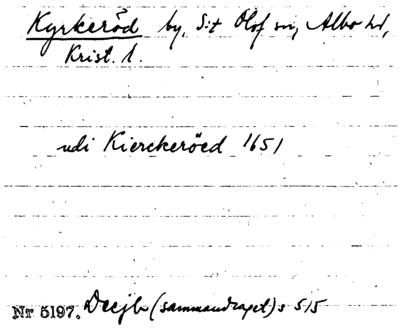 Kyrkeröd by, S:t Olof sn, Albo hd,
Krist. l.
udi Kierckeröed 1651
Nr 5197. Decjb (sammandraget) s 515